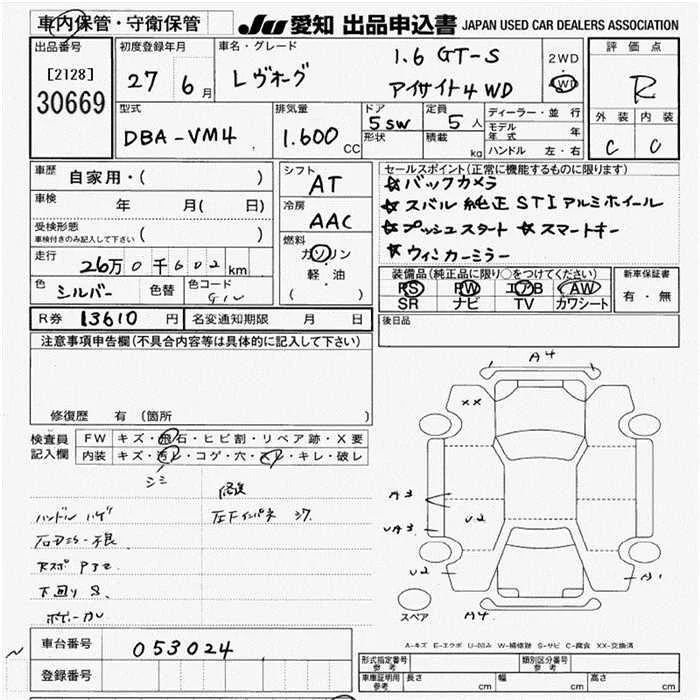 車内保管・守衛保管
JU 愛知 出品申込書 JAPAN USED CAR DEALERS ASSOCIATION
出品番号 初度登録年月 車名・グレード 評価点
[2128] 27 6月 レヴォーグ 1.6 GT-S 2WD R
30669 アイサイト4WD 4WD 外装 内装
型式 排気量 ドア 5SW 定員 5人 ディーラー・並行 C C
DBA-VM4 1.600CC 形状 積載 kg モデル年式 年
ハンドル 左・右
車歴 自家用・( ) シフト AT セールスポイント(正常に機能するものに限ります)
☆バックカメラ
車検 年 月( 日) 冷房 AAC ☆スバル純正STIアルミホイール
受検形態 ( ) ☆プッシュスタート ☆スマートキー
車検付きのみ記入して下さい
走行 26万0千602km 燃料 ガソリン ☆ウィンカーミラー
軽・油
( )
色 シルバー 色替 色コード G1U 装備品(純正品に限り○をつけてください) 新車保証書
PS PW エアB AW 有・無
SR ナビ TV カワシート
R券 13610円 名変通知期限 月 日 後日品
注意事項申告欄(不具合内容等は具体的に記入して下さい)
修復歴 有(箇所 )
検査員 FW キズ・飛石・ヒビ割・リペア跡・X要
記入欄 内装 キズ・汚レ・コゲ・穴・スレ・キレ・破レ
シミ
修送
ハンドル ハゲ
下回り S
A4
XX
A3
UA3
U2
U2
A1
A4
スペア
A-キズ E-エクボ U-凹み W-補修跡 S-サビ C-腐食 XX-交換済
車台番号 053024
登録番号
型式指定番号 参考 類別区分番号 参考
車庫証明用 参考 長さ cm 幅 cm 高さ cm